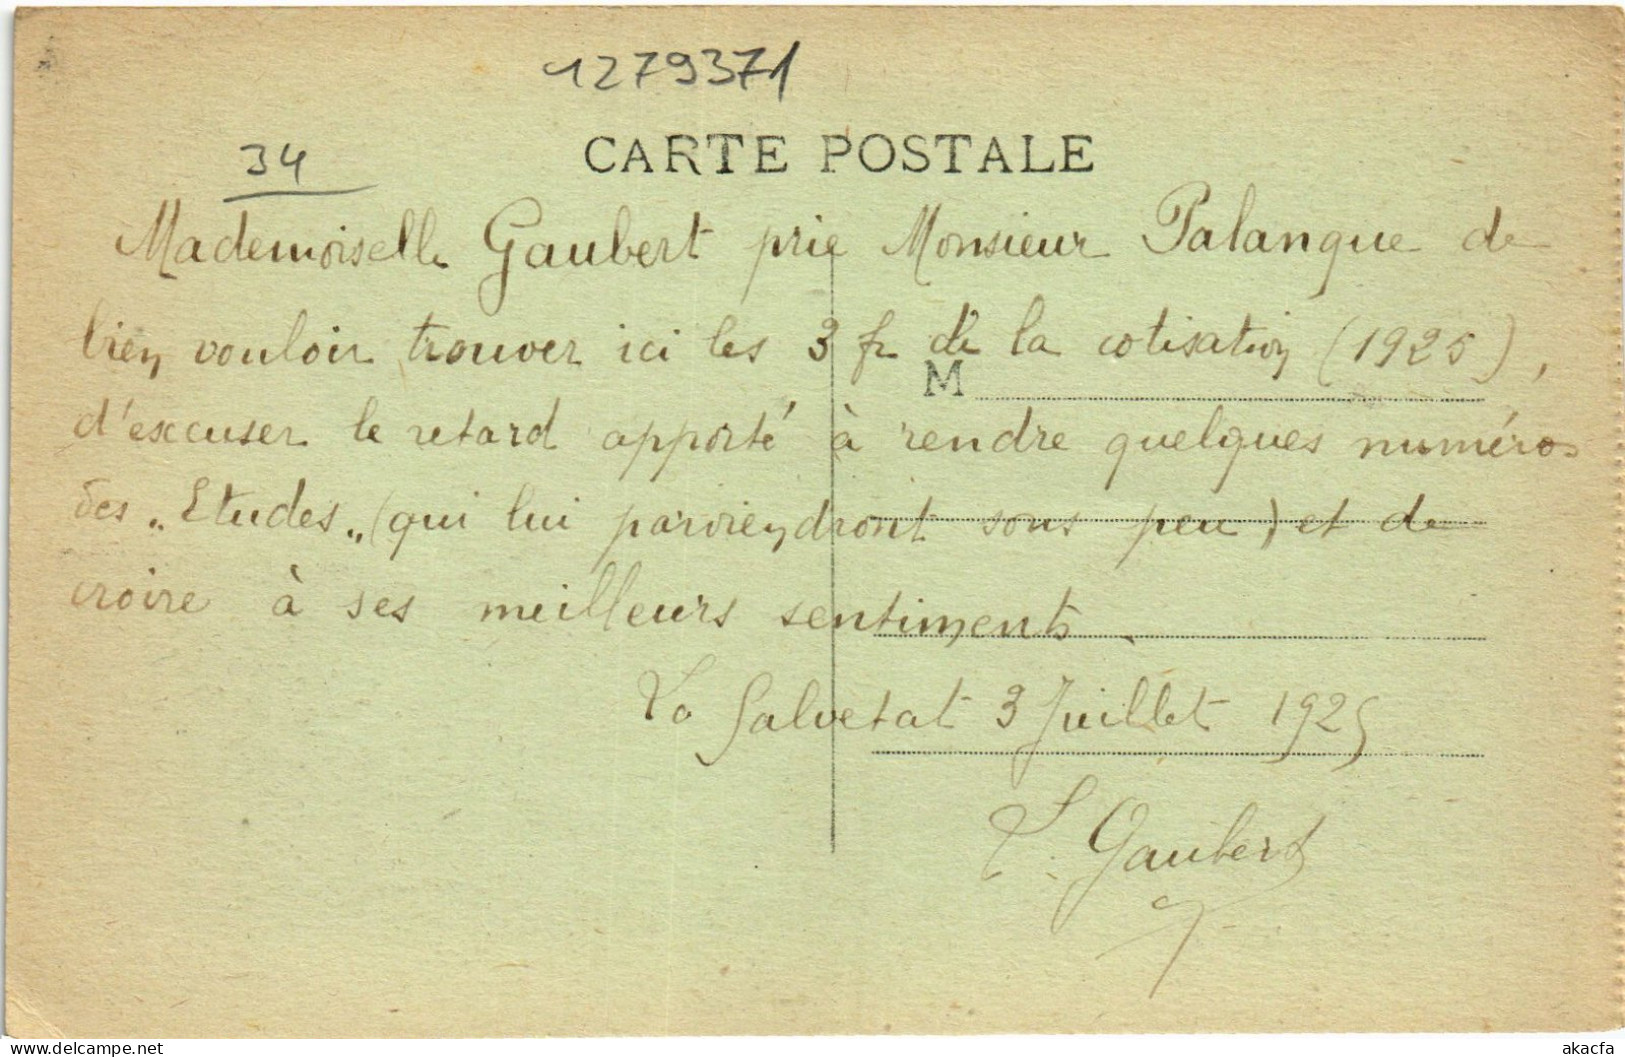 1279371
34
CARTE POSTALE
Mademoiselle Gaubert prie Monsieur Palanque de
bien vouloir trouver ici les 3 fr de la cotisation (1925),
M
d'excuser le retard apporté à rendre quelques numéros
des „Etudes„ (qui lui parviendront sous peu) et de
croire à ses meilleurs sentiments.
La Salvetat 3 Juillet 1925
Gaubert
akacfa